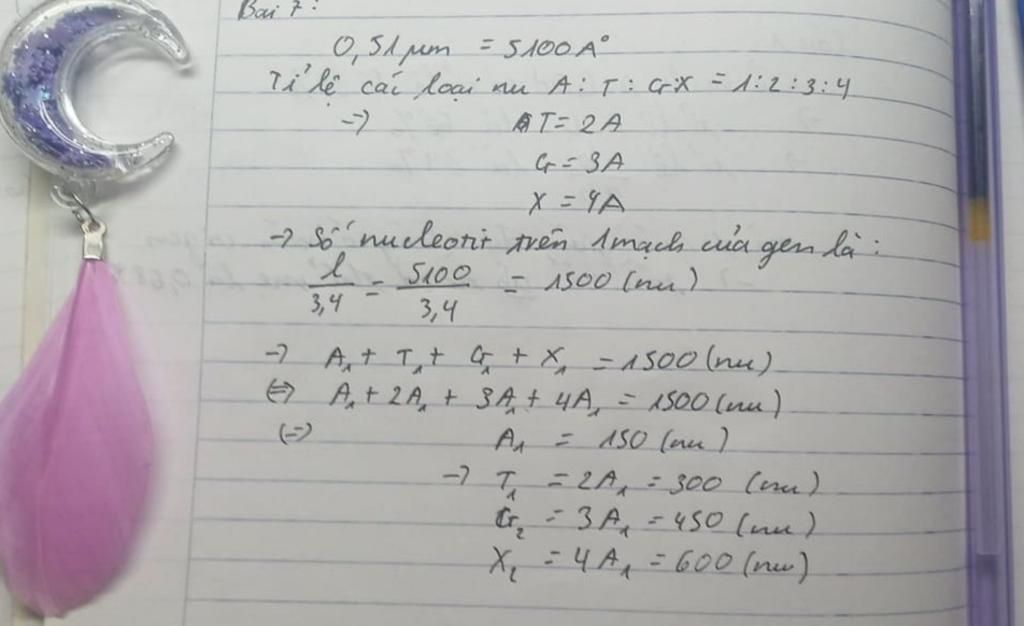 Bài 7:
0,51 µm = 5100 A°
Tỉ lệ các loại nu A : T : G : X = 1 : 2 : 3 : 4
→ T = 2A
G = 3A
X = 4A
→ Số nucleotit trên 1 mạch của gen là :
l/3,4 = 5100/3,4 = 1500 (nu)
→ A₁ + T₁ + G₁ + X₁ = 1500 (nu)
⇔ A₁ + 2A₁ + 3A₁ + 4A₁ = 1500 (nu)
⇔ A₁ = 150 (nu)
→ T₁ = 2A₁ = 300 (nu)
G₂ = 3A₁ = 450 (nu)
X₂ = 4A₁ = 600 (nu)